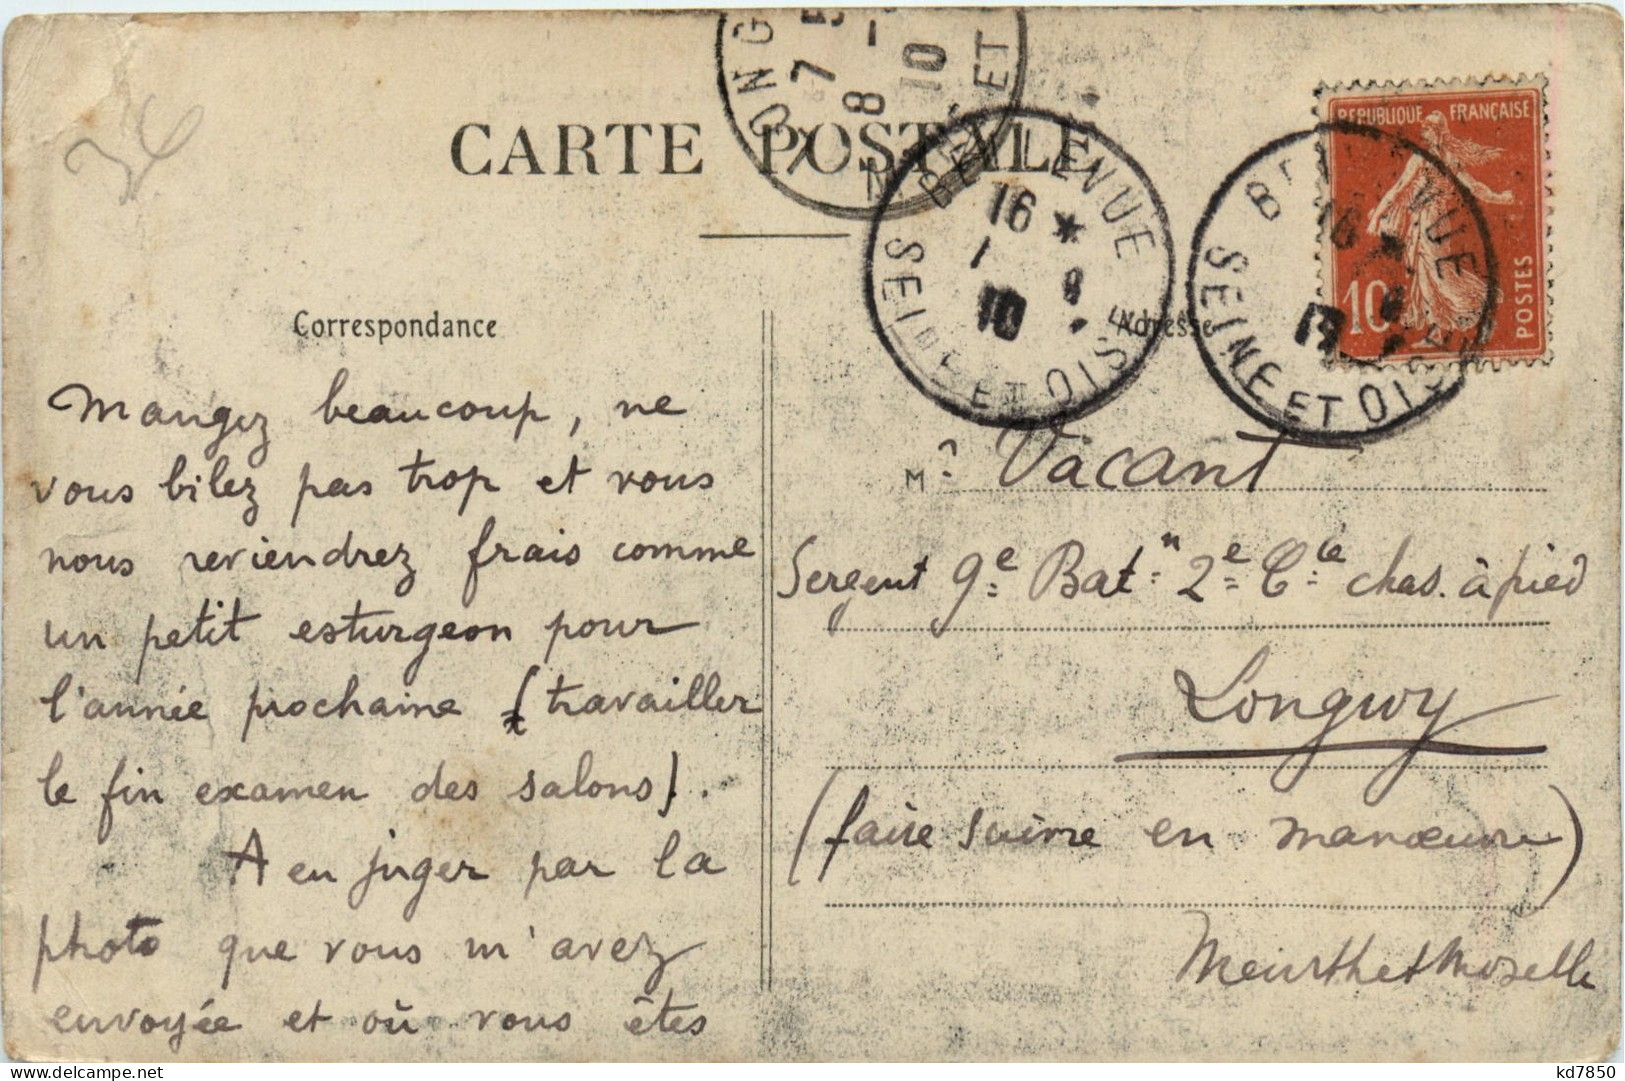 34
CARTE POSTALE
LONGWY
7
8-
10
M ET
BELLEVUE
16 *
1 8
10
SEINE ET OISE
BELLEVUE
16 *
8
SEINE ET OISE
REPUBLIQUE FRANÇAISE
10
POSTES
Correspondance
Adresse
Mangez beaucoup, ne
vous bilez pas trop et vous
nous reviendrez frais comme
un petit esturgeon pour
l'année prochaine (travailler
le fin examen des salons).
A en juger par la
photo que vous m'avez
envoyée et où vous êtes
Mr Vacant
Sergent 9e Batn 2e Cie chas. à pied
Longwy
(faire suivre en manœuvre)
Meurthe et Moselle
kd7850